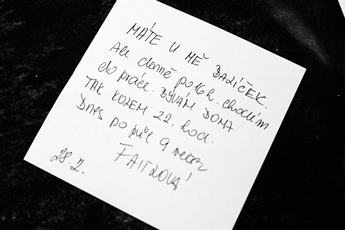 MÁTE U MĚ BALÍČEK.
Ale denně po 16 h. chodím
do práce. BÝVÁM DOMA
TAK KOLEM 22. hod.
Dnes po půl 9 večer
28.2.